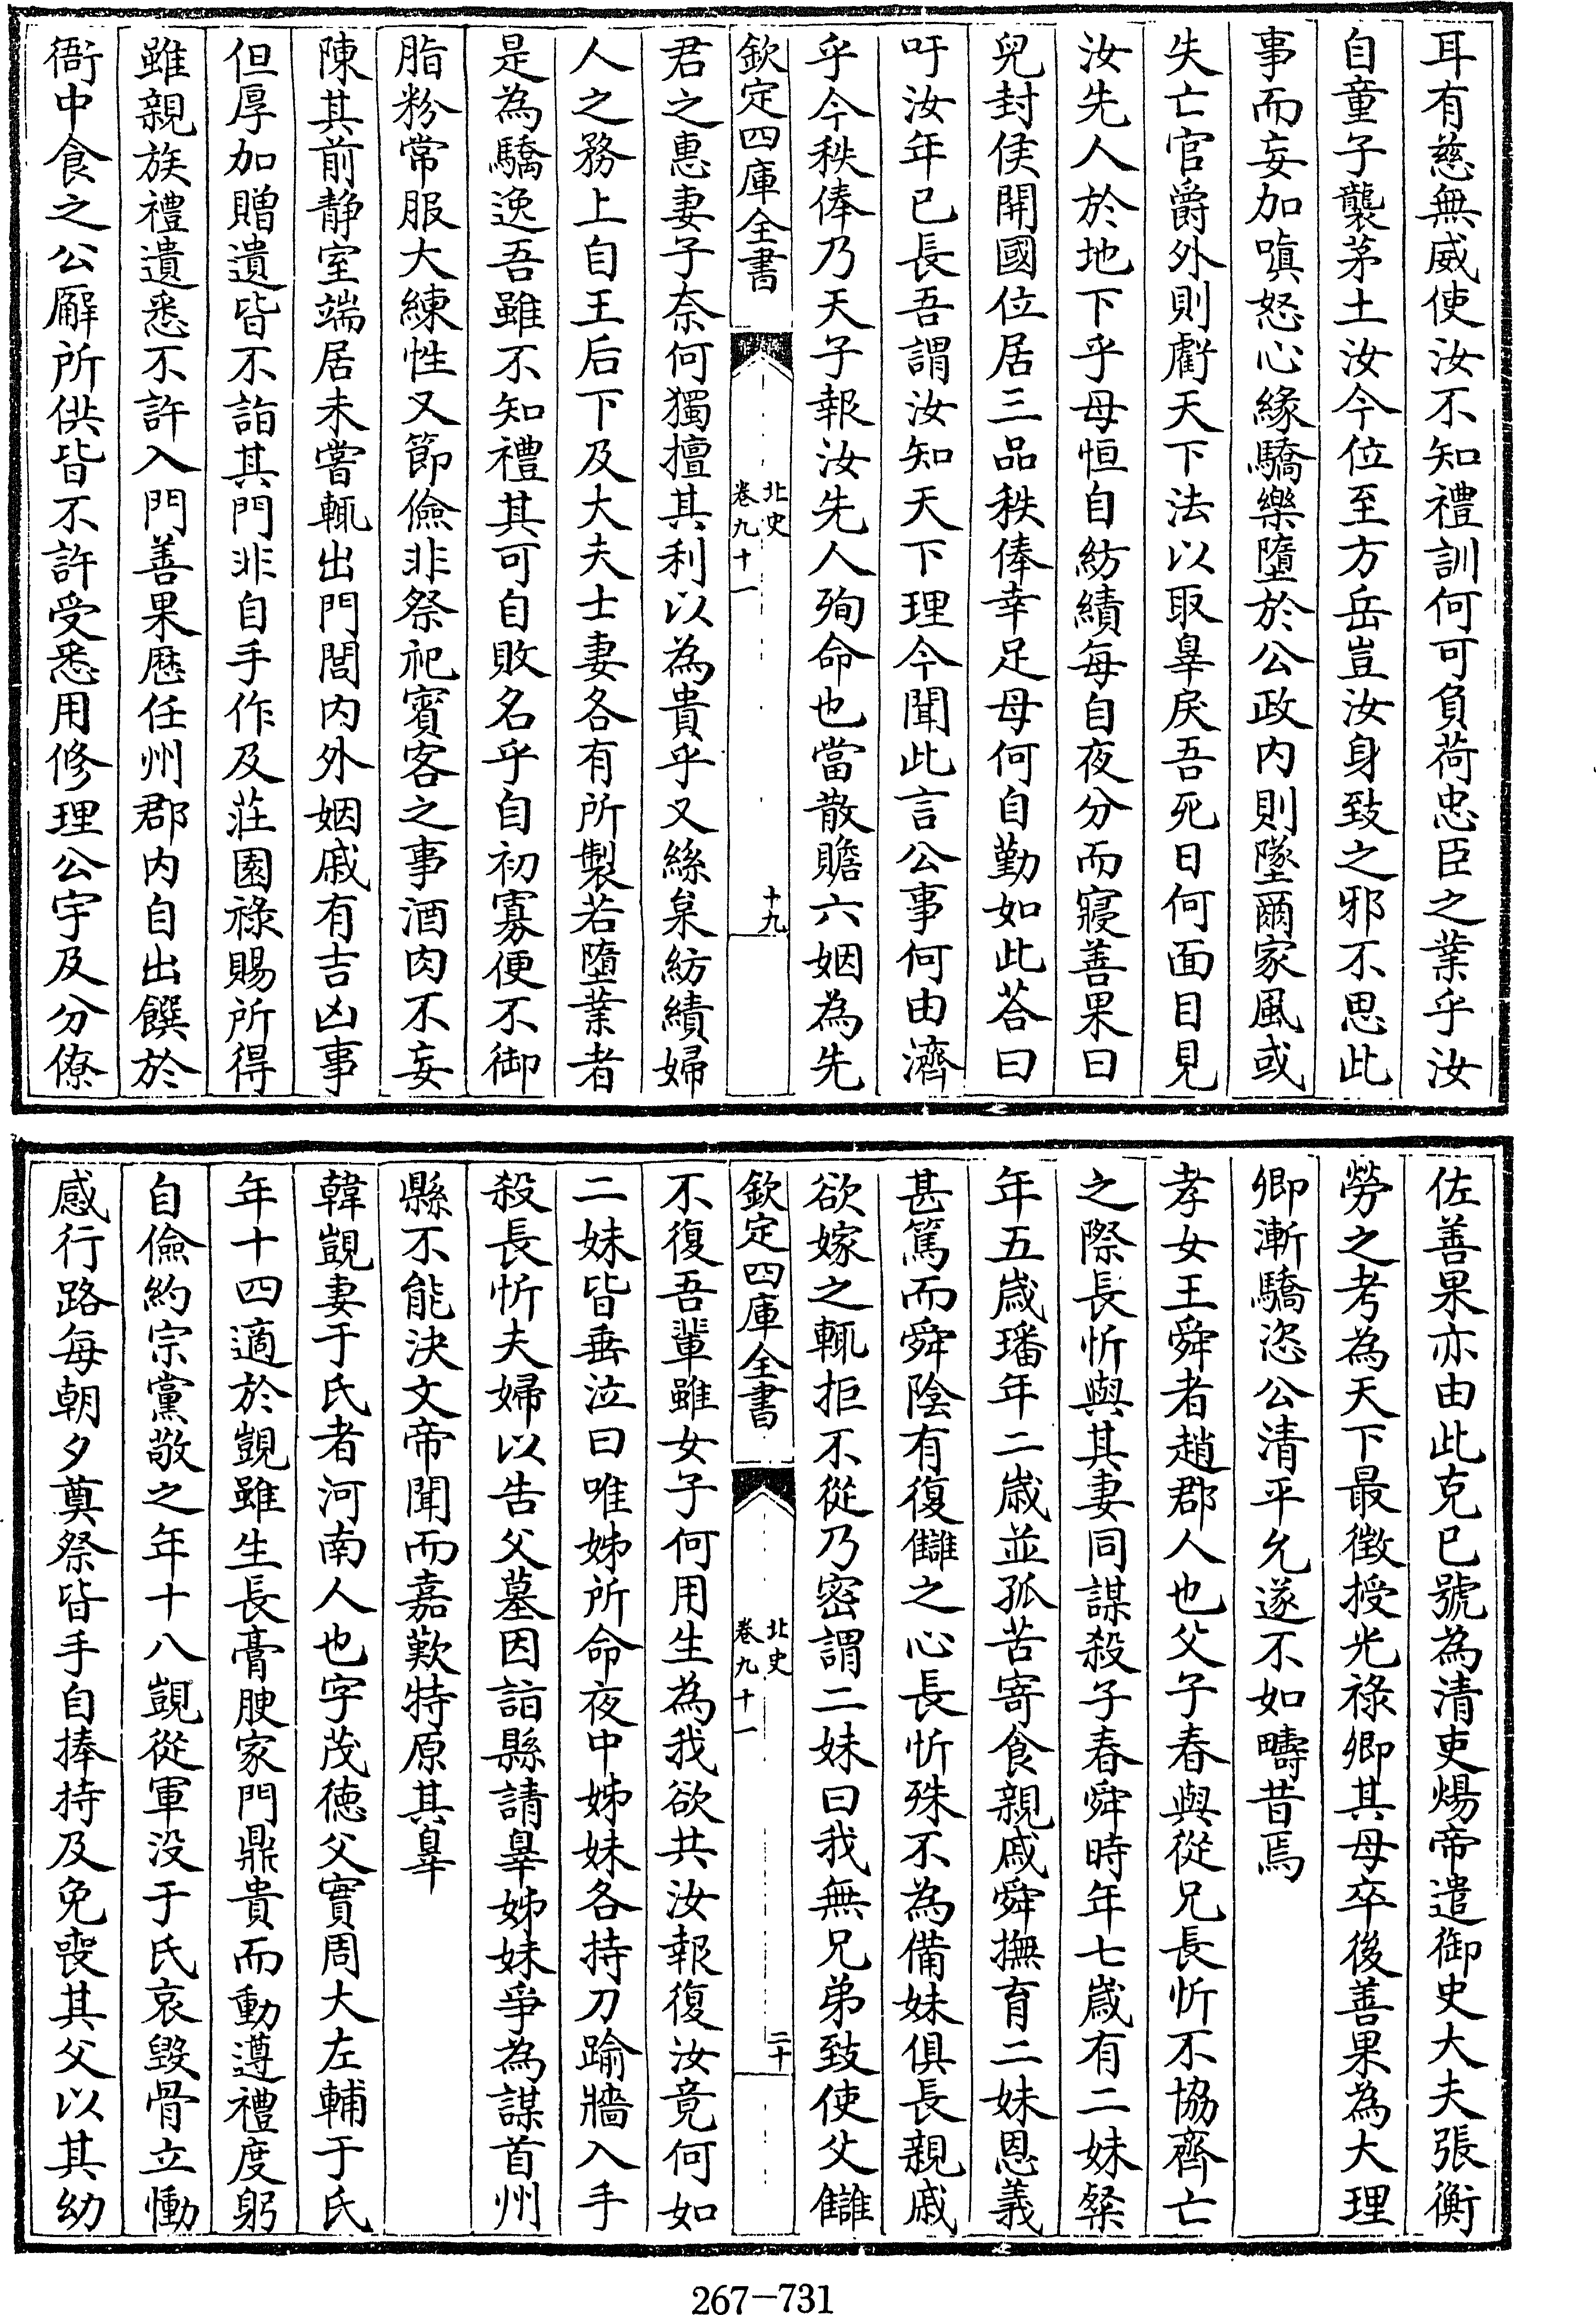 耳有慈無威使汝不知禮訓何可負荷忠臣之業乎汝
自童子襲茅土汝今位至方岳豈汝身致之邪不思此
事而妄加嗔怒心緣驕樂墮於公政内則墜爾家風或
失亡官爵外則虧天下法以取辠戾吾死日何面目見
汝先人於地下乎母恒自紡績每自夜分而寢善果曰
兒封侯開國位居三品秩俸幸足母何自勤如此荅曰
吁汝年已長吾謂汝知天下理今聞此言公事何由濟
乎今秩俸乃天子報汝先人殉命也當散贍六姻為先
欽定四庫全書
北史
卷九十一
十九
君之惠妻子奈何獨擅其利以為貴乎又絲枲紡績婦
人之務上自王后下及大夫士妻各有所製若墮業者
是為驕逸吾雖不知禮其可自敗名乎自初寡便不御
脂粉常服大練性又節儉非祭祀賓客之事酒肉不妄
陳其前静室端居未嘗輒出門閤内外姻戚有吉凶事
但厚加贈遺皆不詣其門非自手作及莊園祿賜所得
雖親族禮遺悉不許入門善果歴任州郡内自出饌於
衙中食之公廨所供皆不許受悉用修理公宇及分僚
佐善果亦由此克已號為清吏煬帝遣御史大夫張衡
勞之考為天下最徴授光祿卿其母卒後善果為大理
卿漸驕恣公清平允遂不如疇昔焉
孝女王舜者趙郡人也父子春與從兄長忻不協齊亡
之際長忻與其妻同謀殺子春舜時年七歲有二妹粲
年五歲璠年二歲並孤苦寄食親戚舜撫育二妹恩義
甚篤而舜陰有復讎之心長忻殊不為備妹俱長親戚
欲嫁之輒拒不從乃密謂二妹曰我無兄弟致使父讎
欽定四庫全書
北史
卷九十一
二十
不復吾輩雖女子何用生為我欲共汝報復汝竟何如
二妹皆垂泣曰唯姊所命夜中姊妹各持刀踰牆入手
殺長忻夫婦以告父墓因詣縣請辠姊妹爭為謀首州
縣不能決文帝聞而嘉歎特原其辠
韓覬妻于氏者河南人也字茂徳父實周大左輔于氏
年十四適於覬雖生長膏腴家門鼎貴而動遵禮度躬
自儉約宗黨敬之年十八覬從軍没于氏哀毁骨立慟
感行路每朝夕奠祭皆手自捧持及免喪其父以其幼
267-731